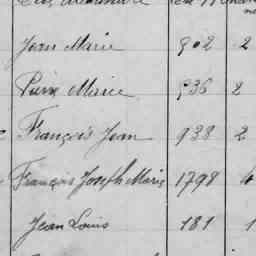 Jean Marie 902 2
Pierre Marie 936 2
François Jean 938 2
François Joseph Marie 1798
Jean Louis 181 1